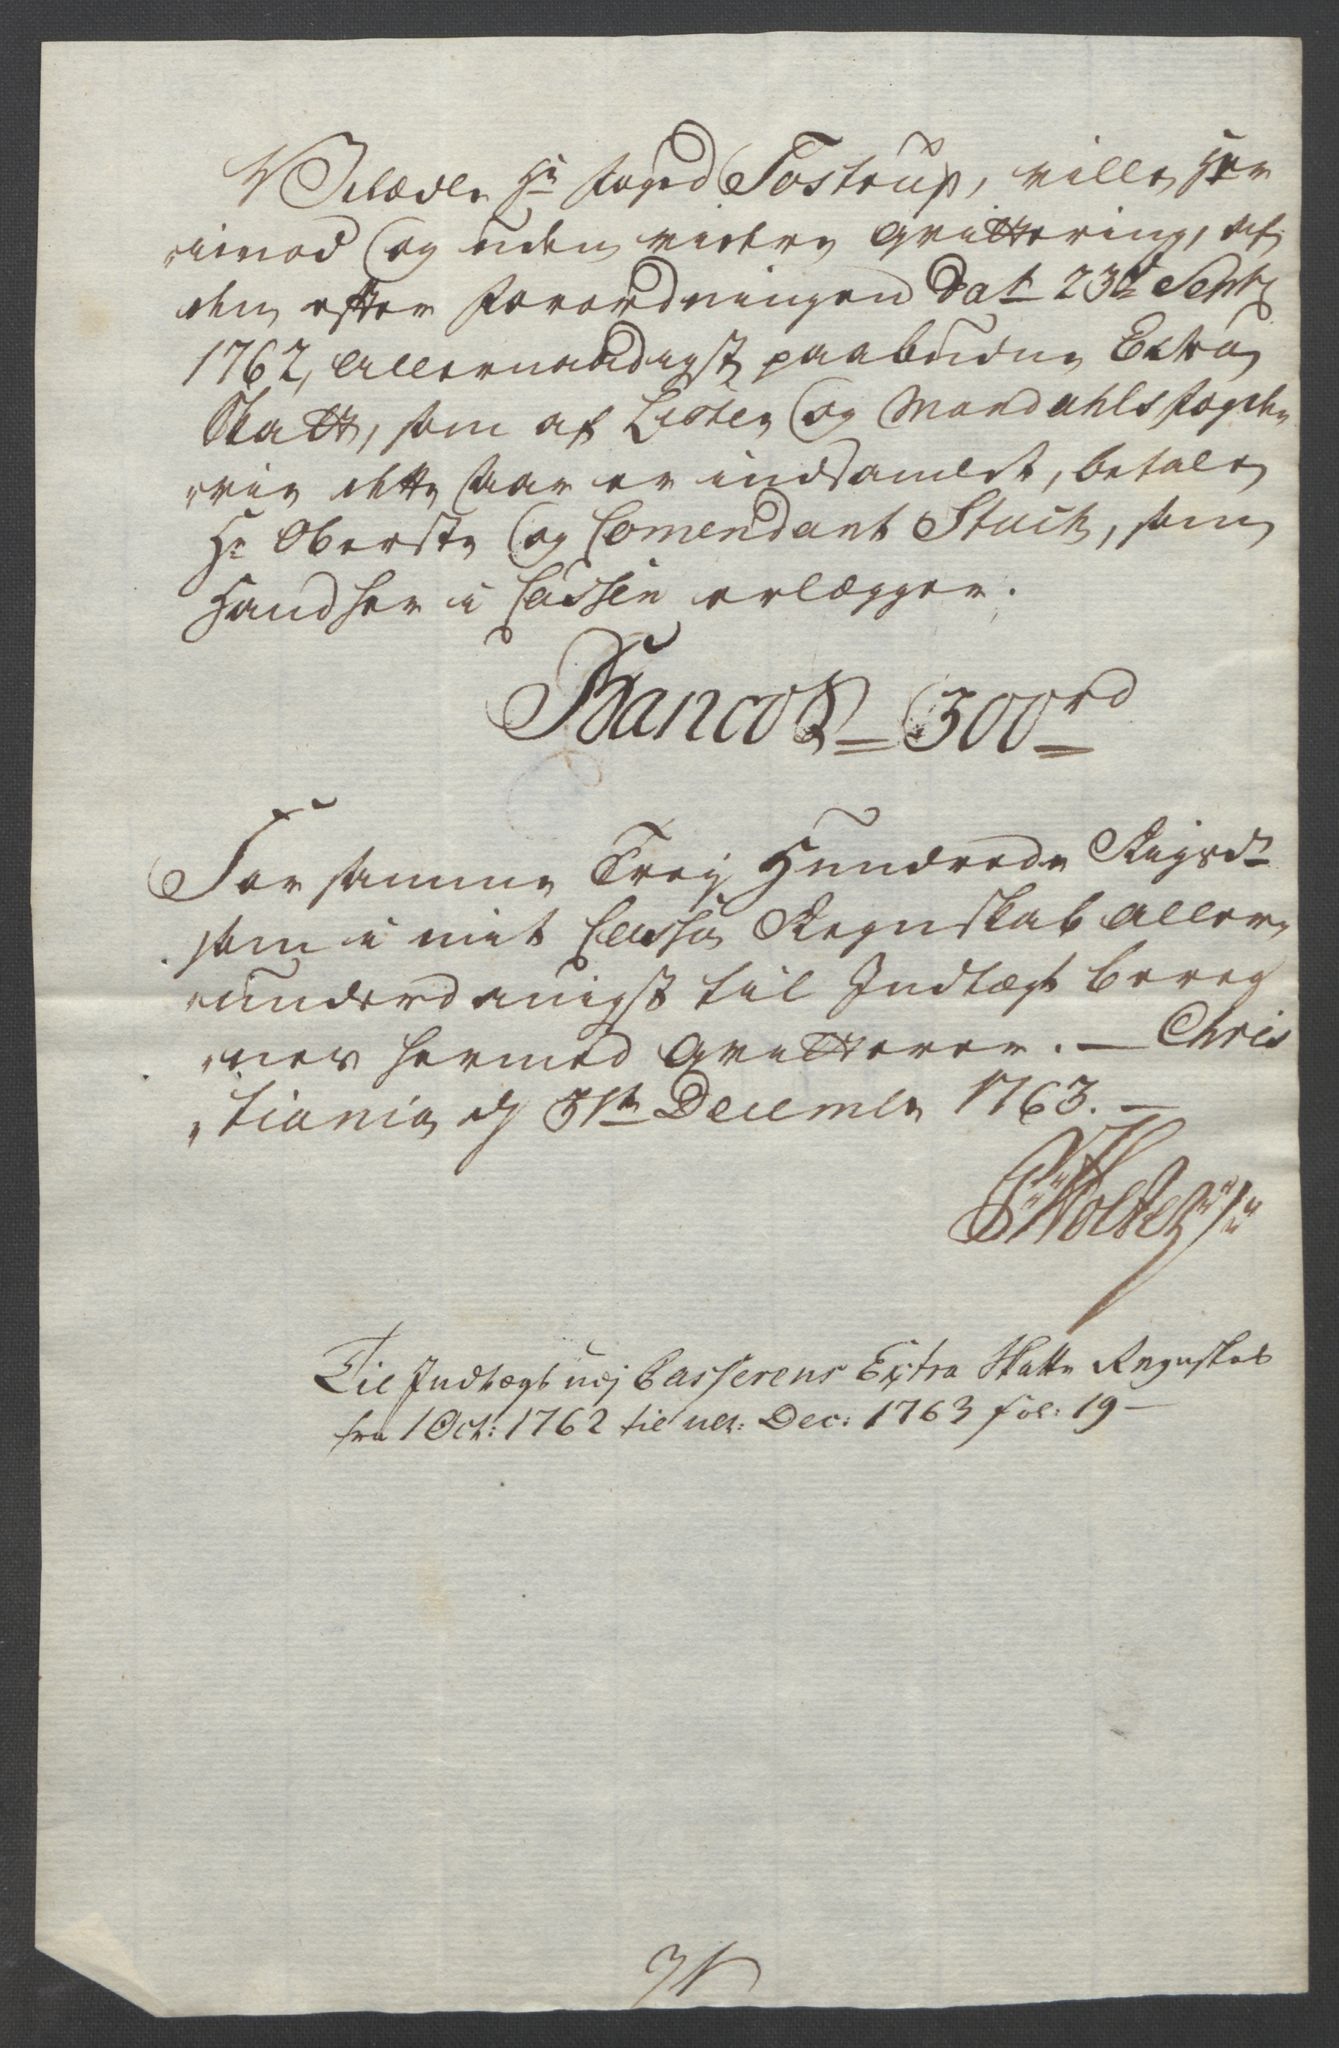 Velædle Hr Foged Tostrup, ville Her
imod og uden videre Qvittering, af
den efter Forordningen Dat 23d Septr
1762, Allernaadigst paabudne Extra
Skatt, som af Lister og Mandahls Fogde
rie dette Aar er indsamlet, betale
Hr Oberste og Comendant Stuch, som
Hand her i Cassen erlægger.
Banco 300rd
For samme Trej Hundrede Rigsdr
som i mit Cassa Regnskab Aller
underdanigst til Indtægt bereg
nes hermed Qvitterer. — Chris
tiania d 31te December 1763. —
Holter
Til Indtægt udj Casserens Extra Skatte Regnskab
fra 1 Oct: 1762 til ult: Dec: 1763 fol: 19 —